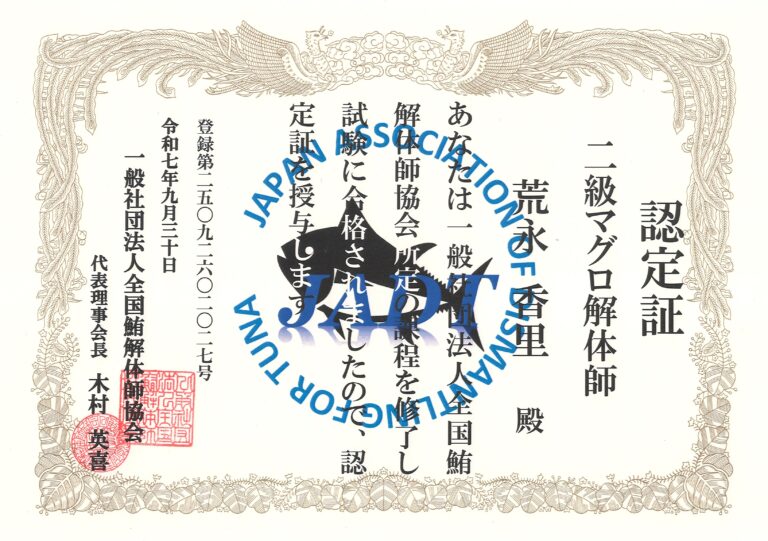 認定証
二級マグロ解体師
荒永 香里 殿
あなたは一般社団法人全国鮪
解体師協会所定の課程を修了し
試験に合格されましたので、認
定証を授与します
登録第二五〇九二六〇二〇二七号
令和七年九月三十日
一般社団法人全国鮪解体師協会
代表理事会長 木村 英喜
JAPAN ASSOCIATION OF DISMANTLING FOR TUNA
JADT